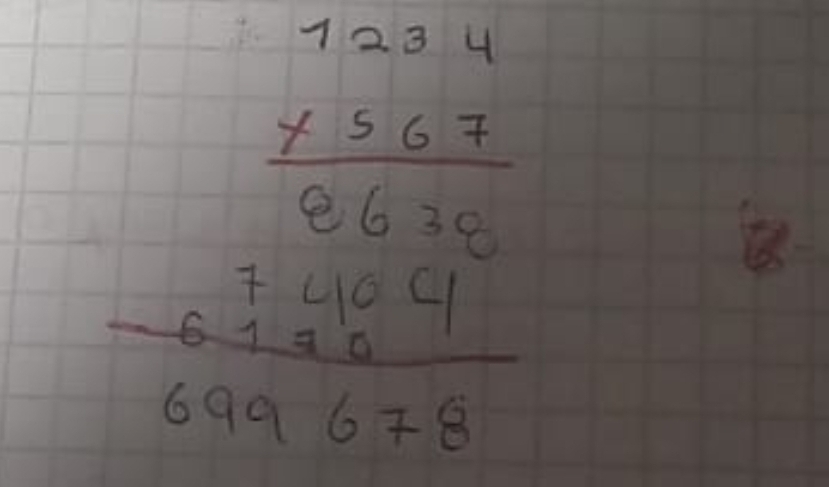 1234
× 567
8638
7404
6170
699678